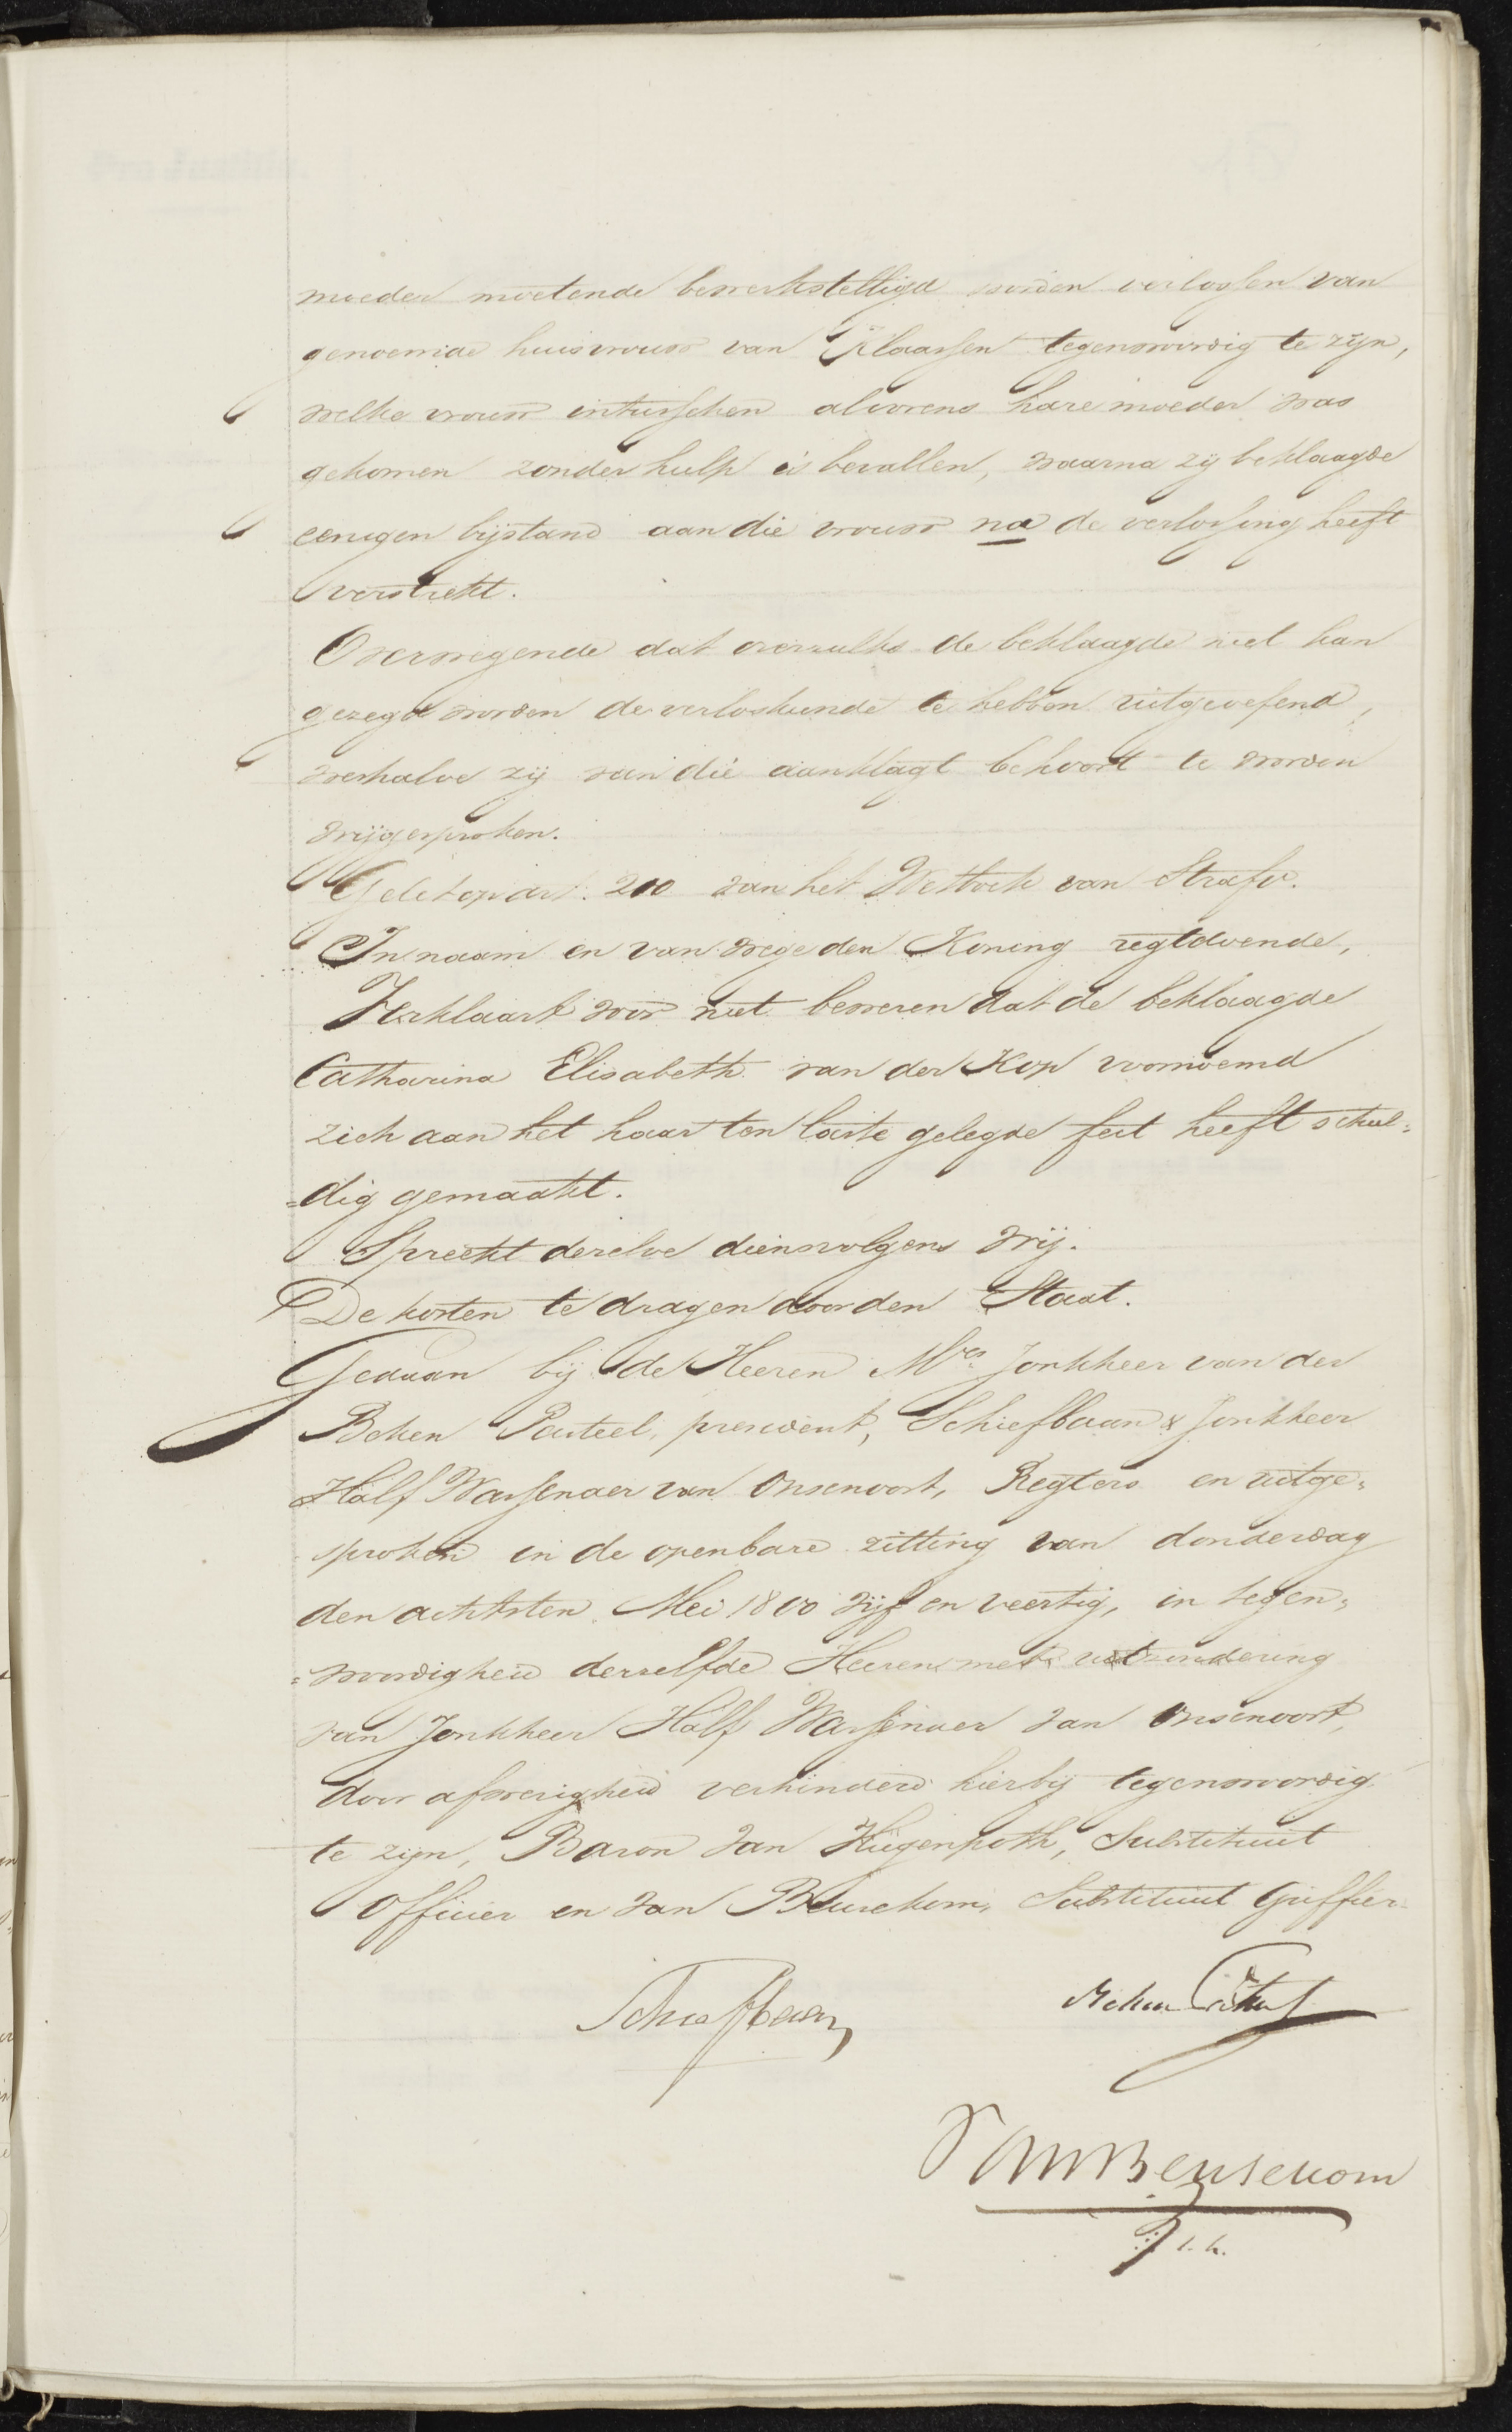 moeder moetende bewerkstelligd worden verlossen van
genoemde huisvrouw van Klaassen tegenwoordig te zijn,
welke vrouw intusschen alvorens hare moeder was
gekomen zonder hulp is bevallen, waarna zij beklaagde
eenigen bijstand aan die vrouw na de verlossing heeft
verstrekt.
Overwegende dat overzulks de beklaagde niet kan
gezegd worden de verloskunde te hebben uitgeoefend,
weshalve zij van die aanklagt behoort te worden
vrijgesproken.
Gelet op art. 210 van het Wetboek van Strafv.
In naam en van wege den Koning regtdoende,
Verklaart voor niet bewezen dat de beklaagde
Catharina Elisabeth van der Kop voornoemd
zich aan het haar ten laste gelegde feit heeft schul=
=dig gemaakt.
Spreekt dezelve diensvolgens vrij.
De kosten te dragen door den Staat.
Gedaan bij de Heeren Mrs. Jonkheer van der
Beken Pasteel, president, Schiefbaan & Jonkheer
Half Wassenaer van Onsenoort, Regters en uitge=
sproken in de openbare zitting van donderdag
den achtsten Mei 1800 vijf en veertig, in tegen=
=woordigheid derzelfde Heeren met uitzondering
van Jonkheer Half Wassenaer van Onsenoort,
door afwezigheid verhinderd hierbij tegenwoordig
te zijn, Baron van Hugenpoth, Substituut
Officier en van Beusekom, Substituut Griffier.
Schiefbaan
Beken Pasteel
van Beusekom